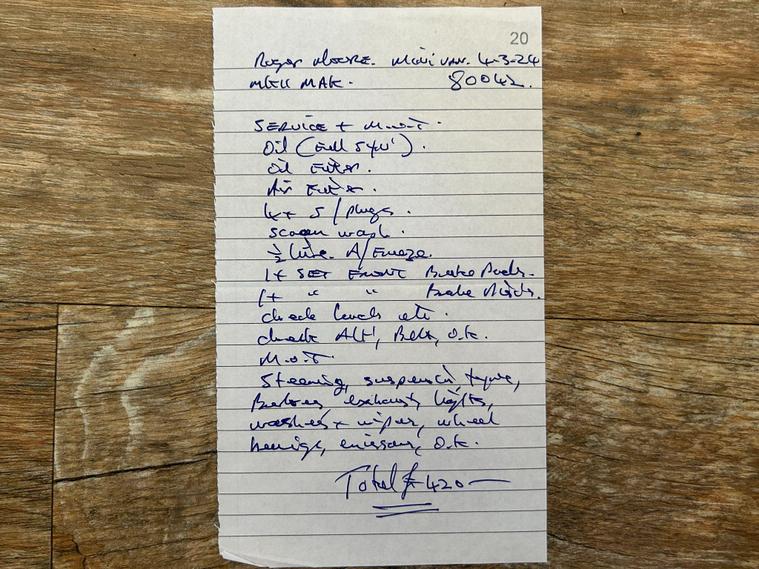 20
Roger Moore. Mini van. 4-3-24
MAK. 80042.
SERVICE + M.O.T.
Oil (Full SYN').
Oil Filter.
Air Filter.
4x S/Plugs.
Screen wash.
½ Litre. A/Freeze.
1x SET FRONT Brake Pads.
1x " " Brake Discs.
check levels etc.
check Alt', Belt, o.k.
M.O.T.
Steering, suspension, tyre,
Brakes, exhaust, lights,
washer + wiper, wheel
bearings, emission, o.k.
Total £420—